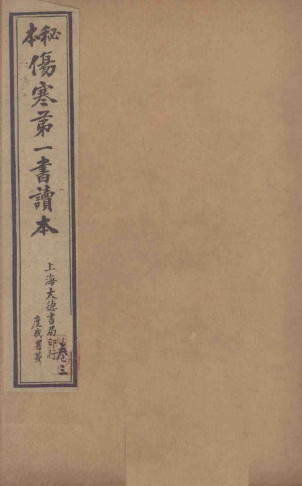 秘本
傷寒第一書讀本
上海大德書局印行
度我署簽
卷三